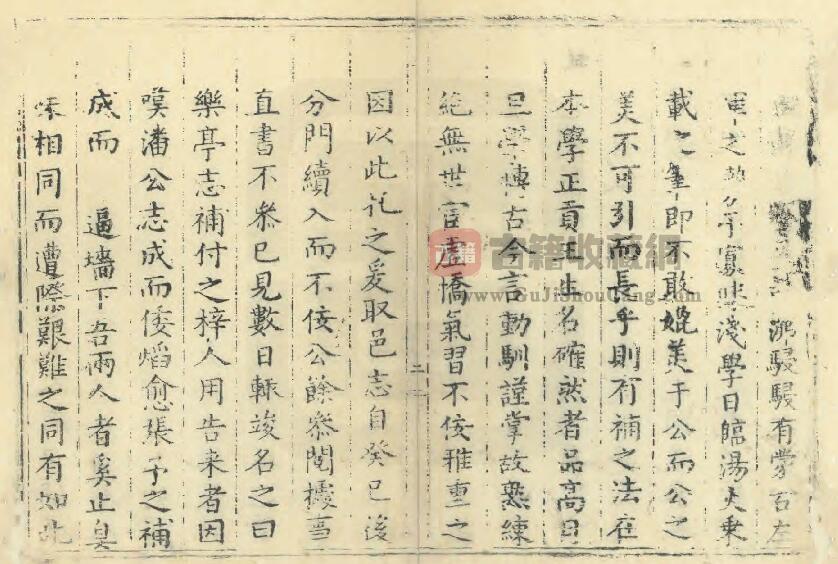 駸駸有
淺學日臨湯火
載之筆即不敢媲美于公而公之
美不可引而長乎則有補之法在
本學正貢王生名確然者品高月
旦學博古今言動馴謹掌故熟練
絕無世宦虛憍氣習不佞雅重之
二
因以此託之爰取邑志自癸巳後
分門續入而不佞公餘叅閱據事
直書不叅已見數日輙竣名之曰
樂亭志補付之梓人用告来者因
嘆潘公志成而倭熖愈張予之補
成而 逼墻下吾兩人者奚止臭
味相同而遭際艱難之同有如此
古籍收藏網
www.GuJiShouCang.com